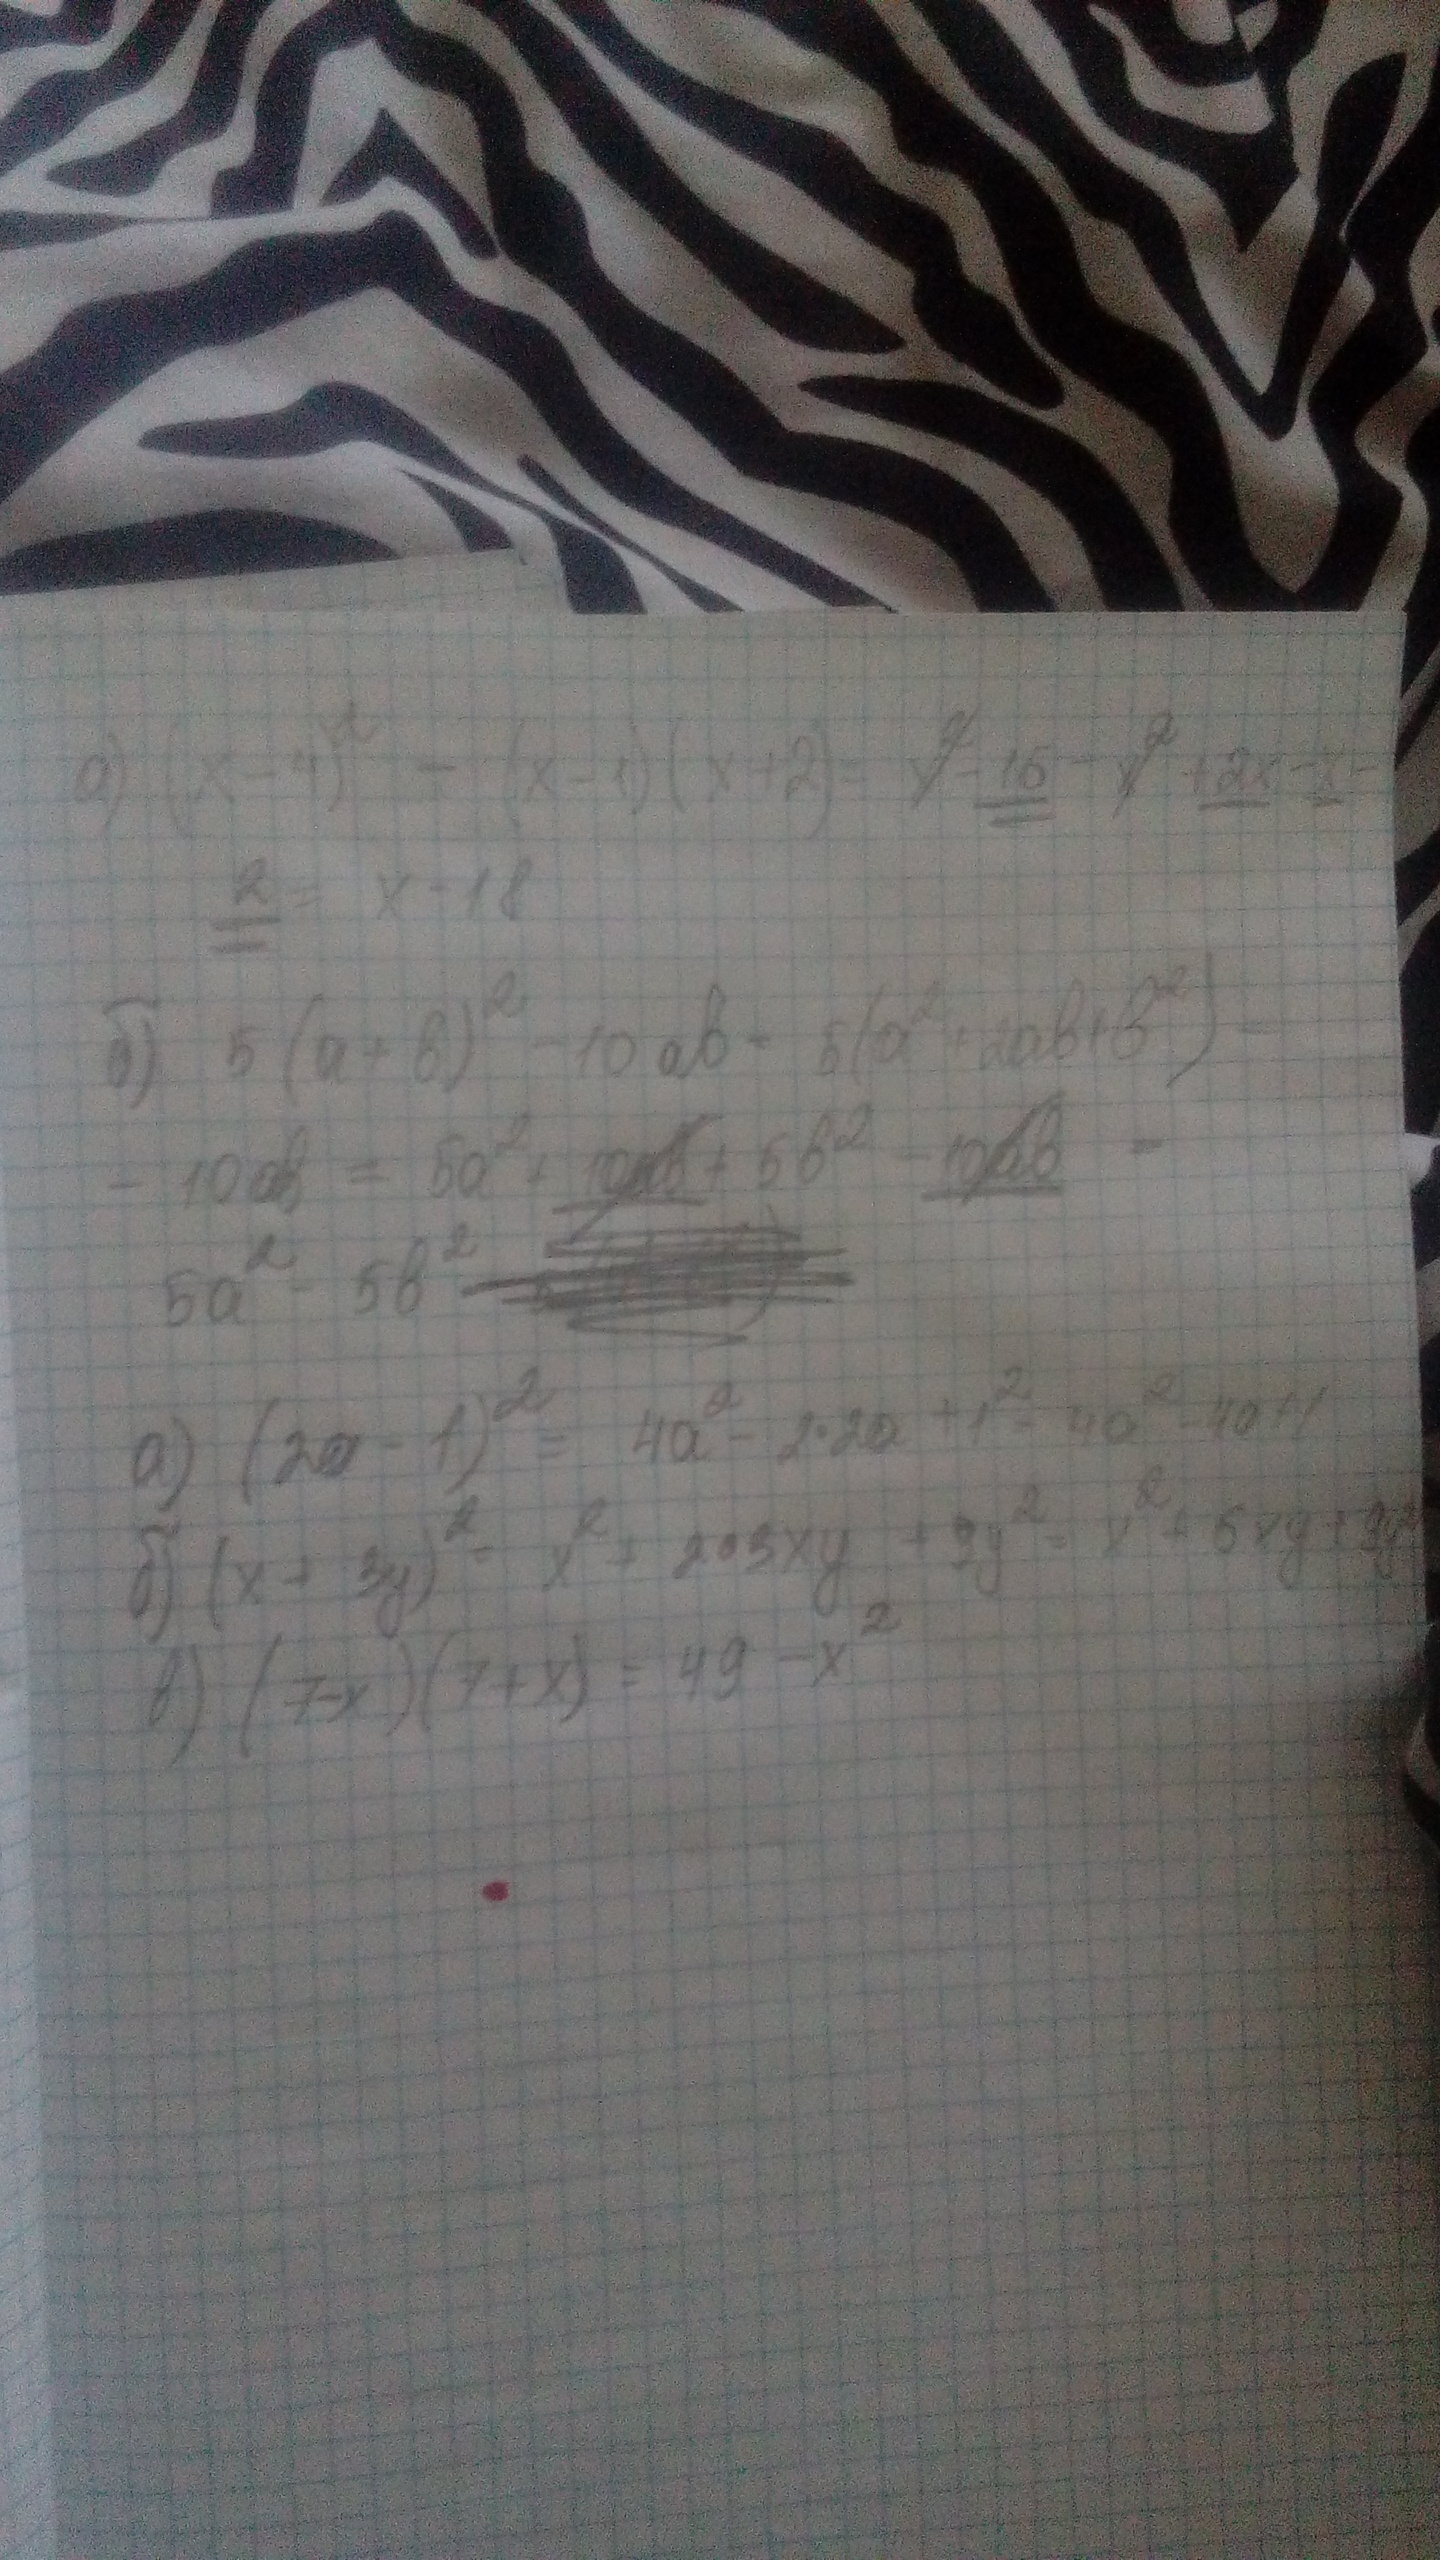 а) (x-4)² - (x-1)(x+2) = x² - 16 - x² + 2x - x -
2 = x - 18
б) 5(a+b)² - 10ab = 5(a² + 2ab + b²) -
- 10ab = 5a² + 10ab + 5b² - 10ab =
5a² - 5b²
а) (2a - 1)² = 4a² - 2·2a + 1² = 4a² - 4a + 1
б) (x + 3y)² = x² + 2·3xy + 9y² = x² + 6xy + 9y²
в) (7-x)(7+x) = 49 - x²